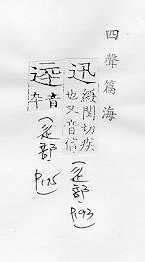 四聲篇海
迅
綏閏切疾
也又音信
(辵部 P.193)
音
(辵部 P.175)